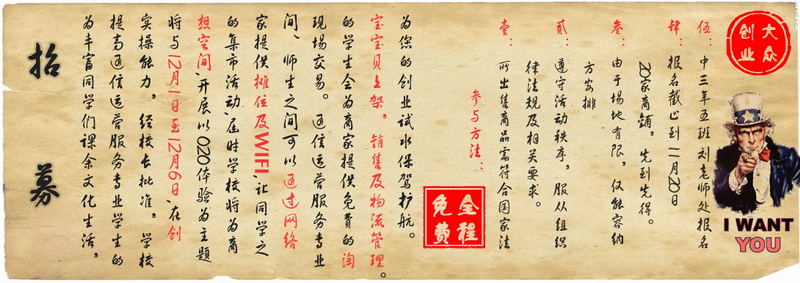 招募
为丰富同学们课余文化生活，
提高通信运营服务专业学生的
实操能力。经校长批准，学校
将与12月1日至12月6日，在创
想空间，开展以O2O体验为主题
的集市活动，届时学校将为商
家提供摊位及WIFI，让同学之
间、师生之间可以通过网络
现场交易。通信运营服务专业
的学生会为商家提供免费的淘
宝宝贝上架，销售及物流管理。
为您的创业试水保驾护航。
参与方法：
壹：所出售商品需符合国家法
律法规及相关要求。
贰：遵守活动秩序，服从组织
方安排
叁：由于场地有限，仅能容纳
20家商铺，先到先得。
肆：报名截止到11月20日
伍：中三年五班刘老师处报名
全程
免费
大众
创业
I WANT
YOU